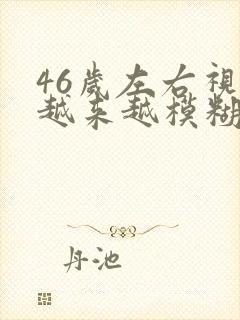 46歲左右視
越来越模糊
丹池